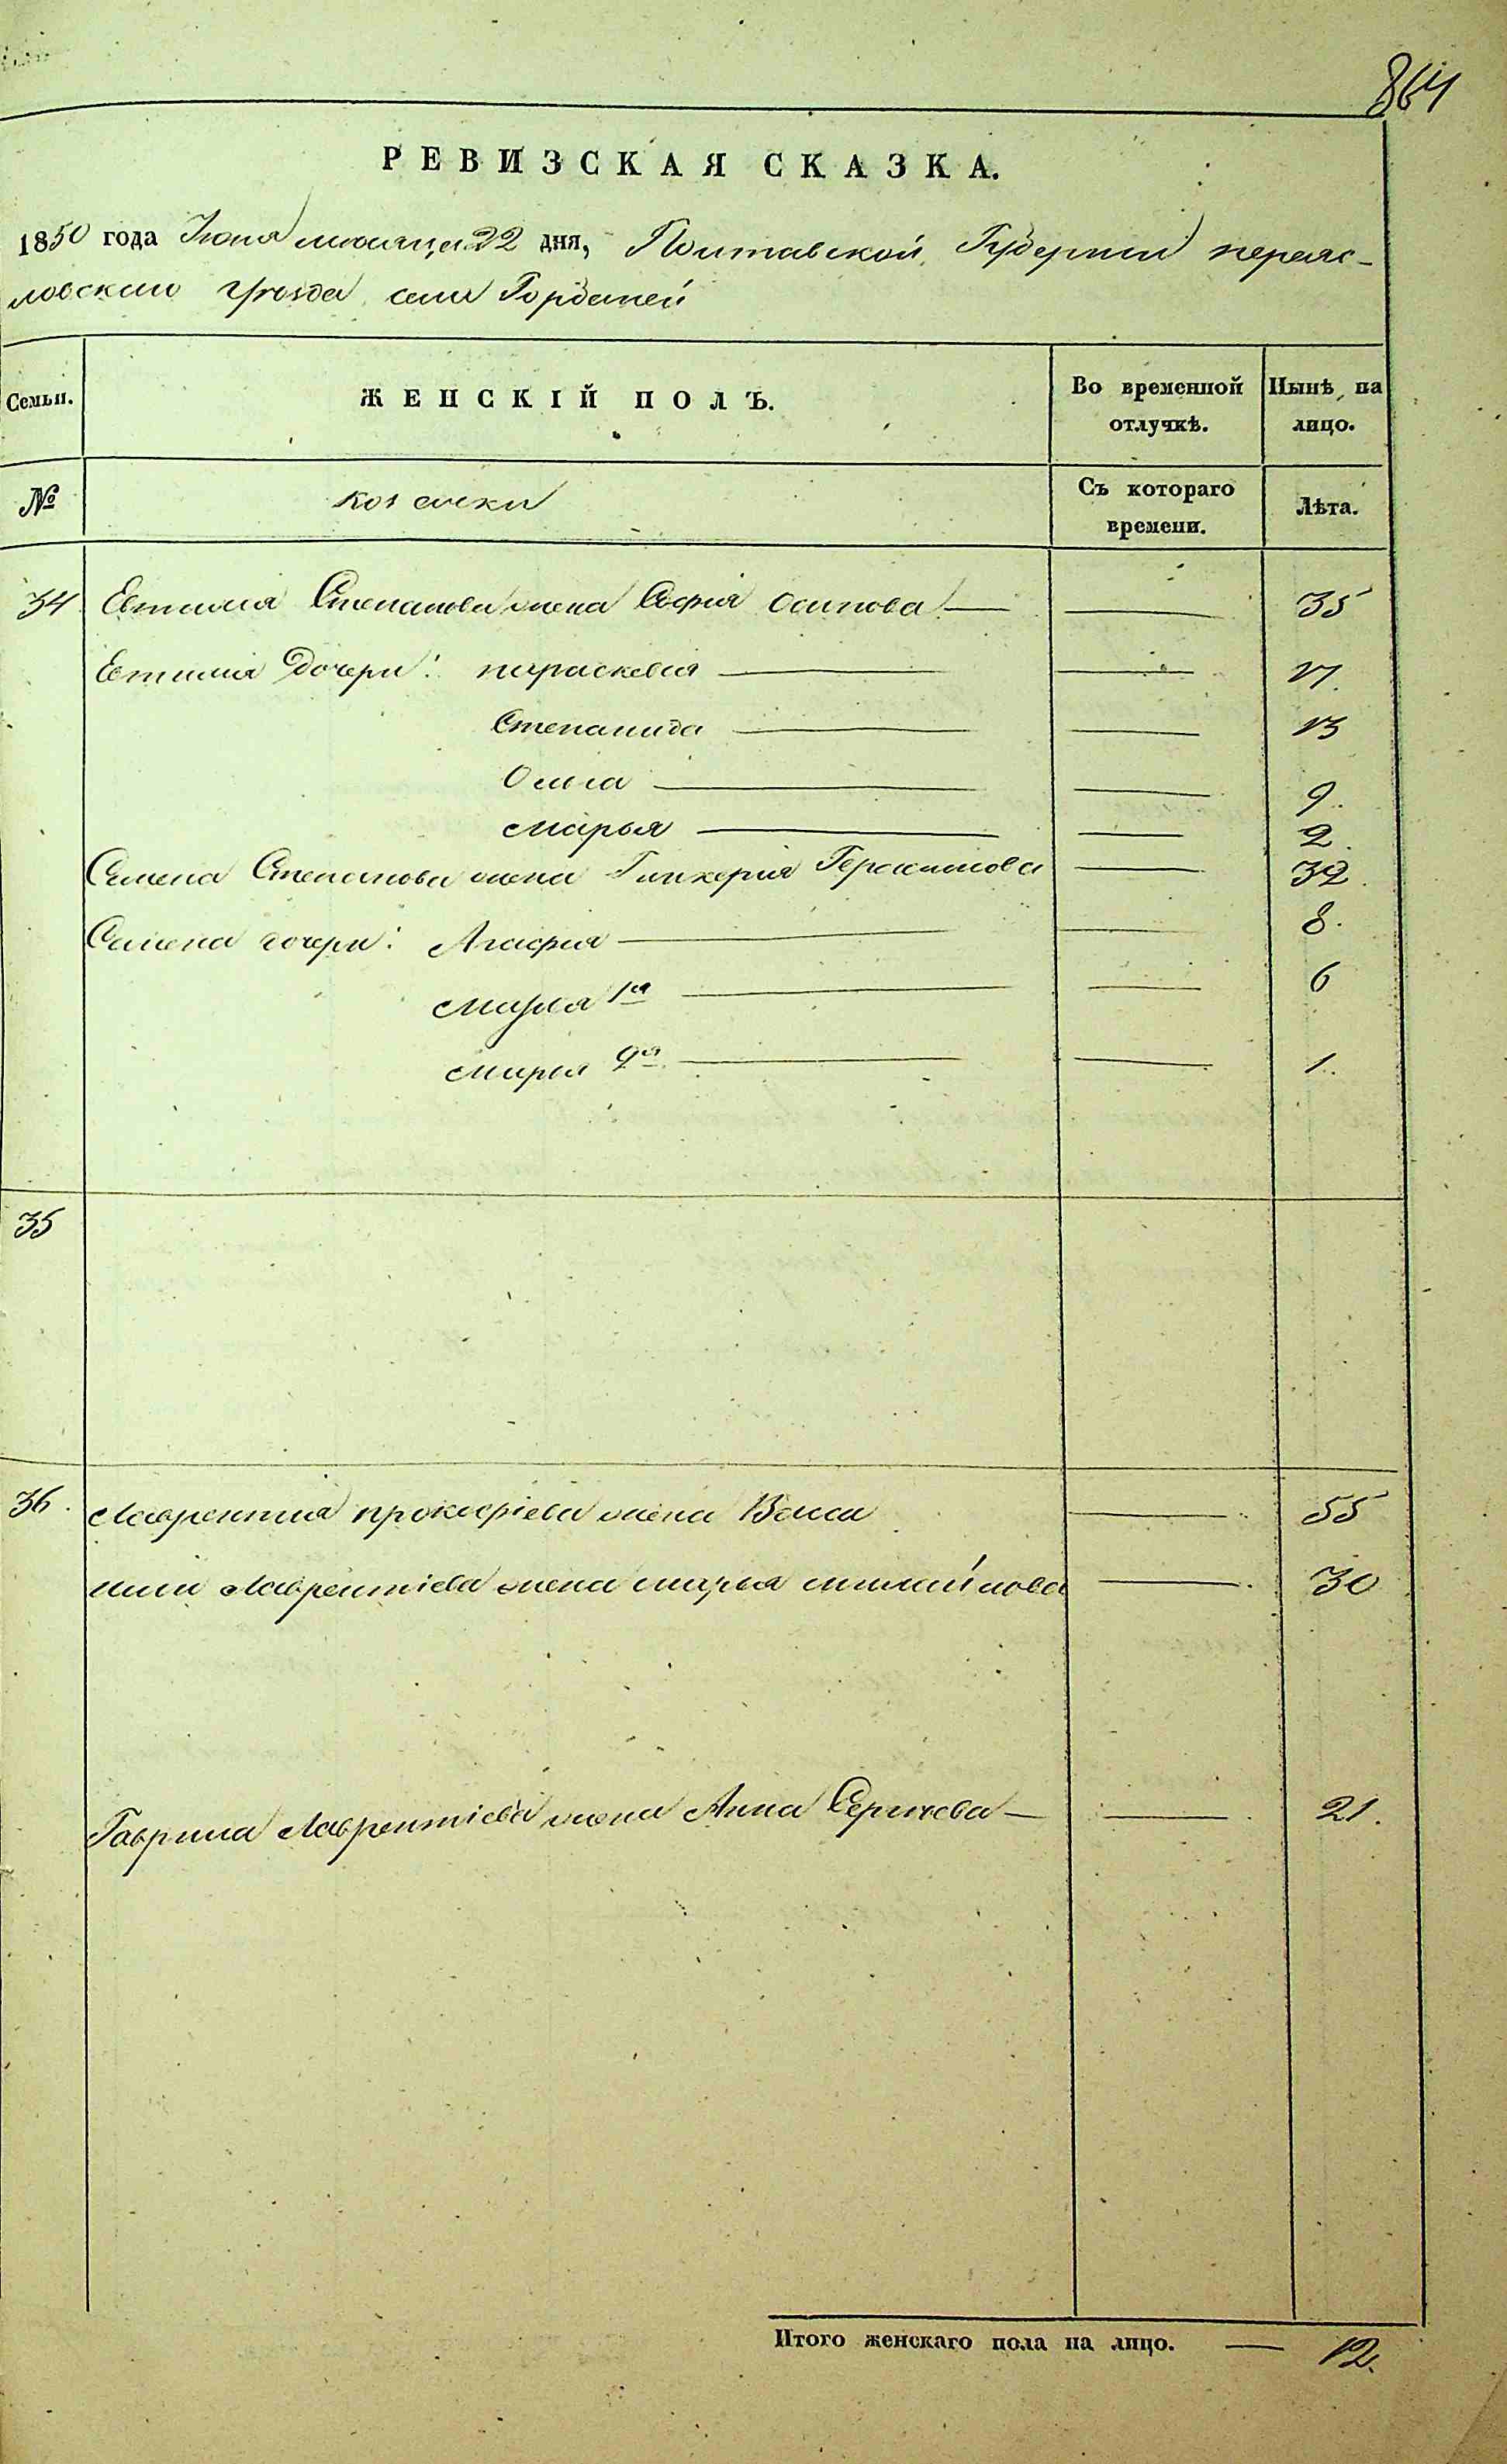 864
РЕВИЗСКАЯ СКАЗКА.
1850 года Іюня месяца 22 дня, Полтавской Губерніи переяс-
ловского уезда села Горбаней
Семьи. ЖЕНСКІЙ ПОЛЪ. Во временной отлучкѣ. Нынѣ на лицо.
№ козачки Съ котораго времени. Лѣта.
34 Евтимия Степанова жена София Осипова — — 35
Евтимия дочери: параскевия — — 17.
Степанида — — 13
Ольга — — 9.
марья — — 2.
Семена Степанова жена Гликерия Герасимова — 32.
Семена дочери: Агафия — — 8.
марья 1я — — 6
марья 2я — — 1.
35
36. Лаврентия прокофіева жена Васса — 55
Лаврентіева жена марья михайлова — 30
Гаврила Лаврентіева жена Анна Сергиева — — 21.
Итого женскаго пола на лицо. — 12.